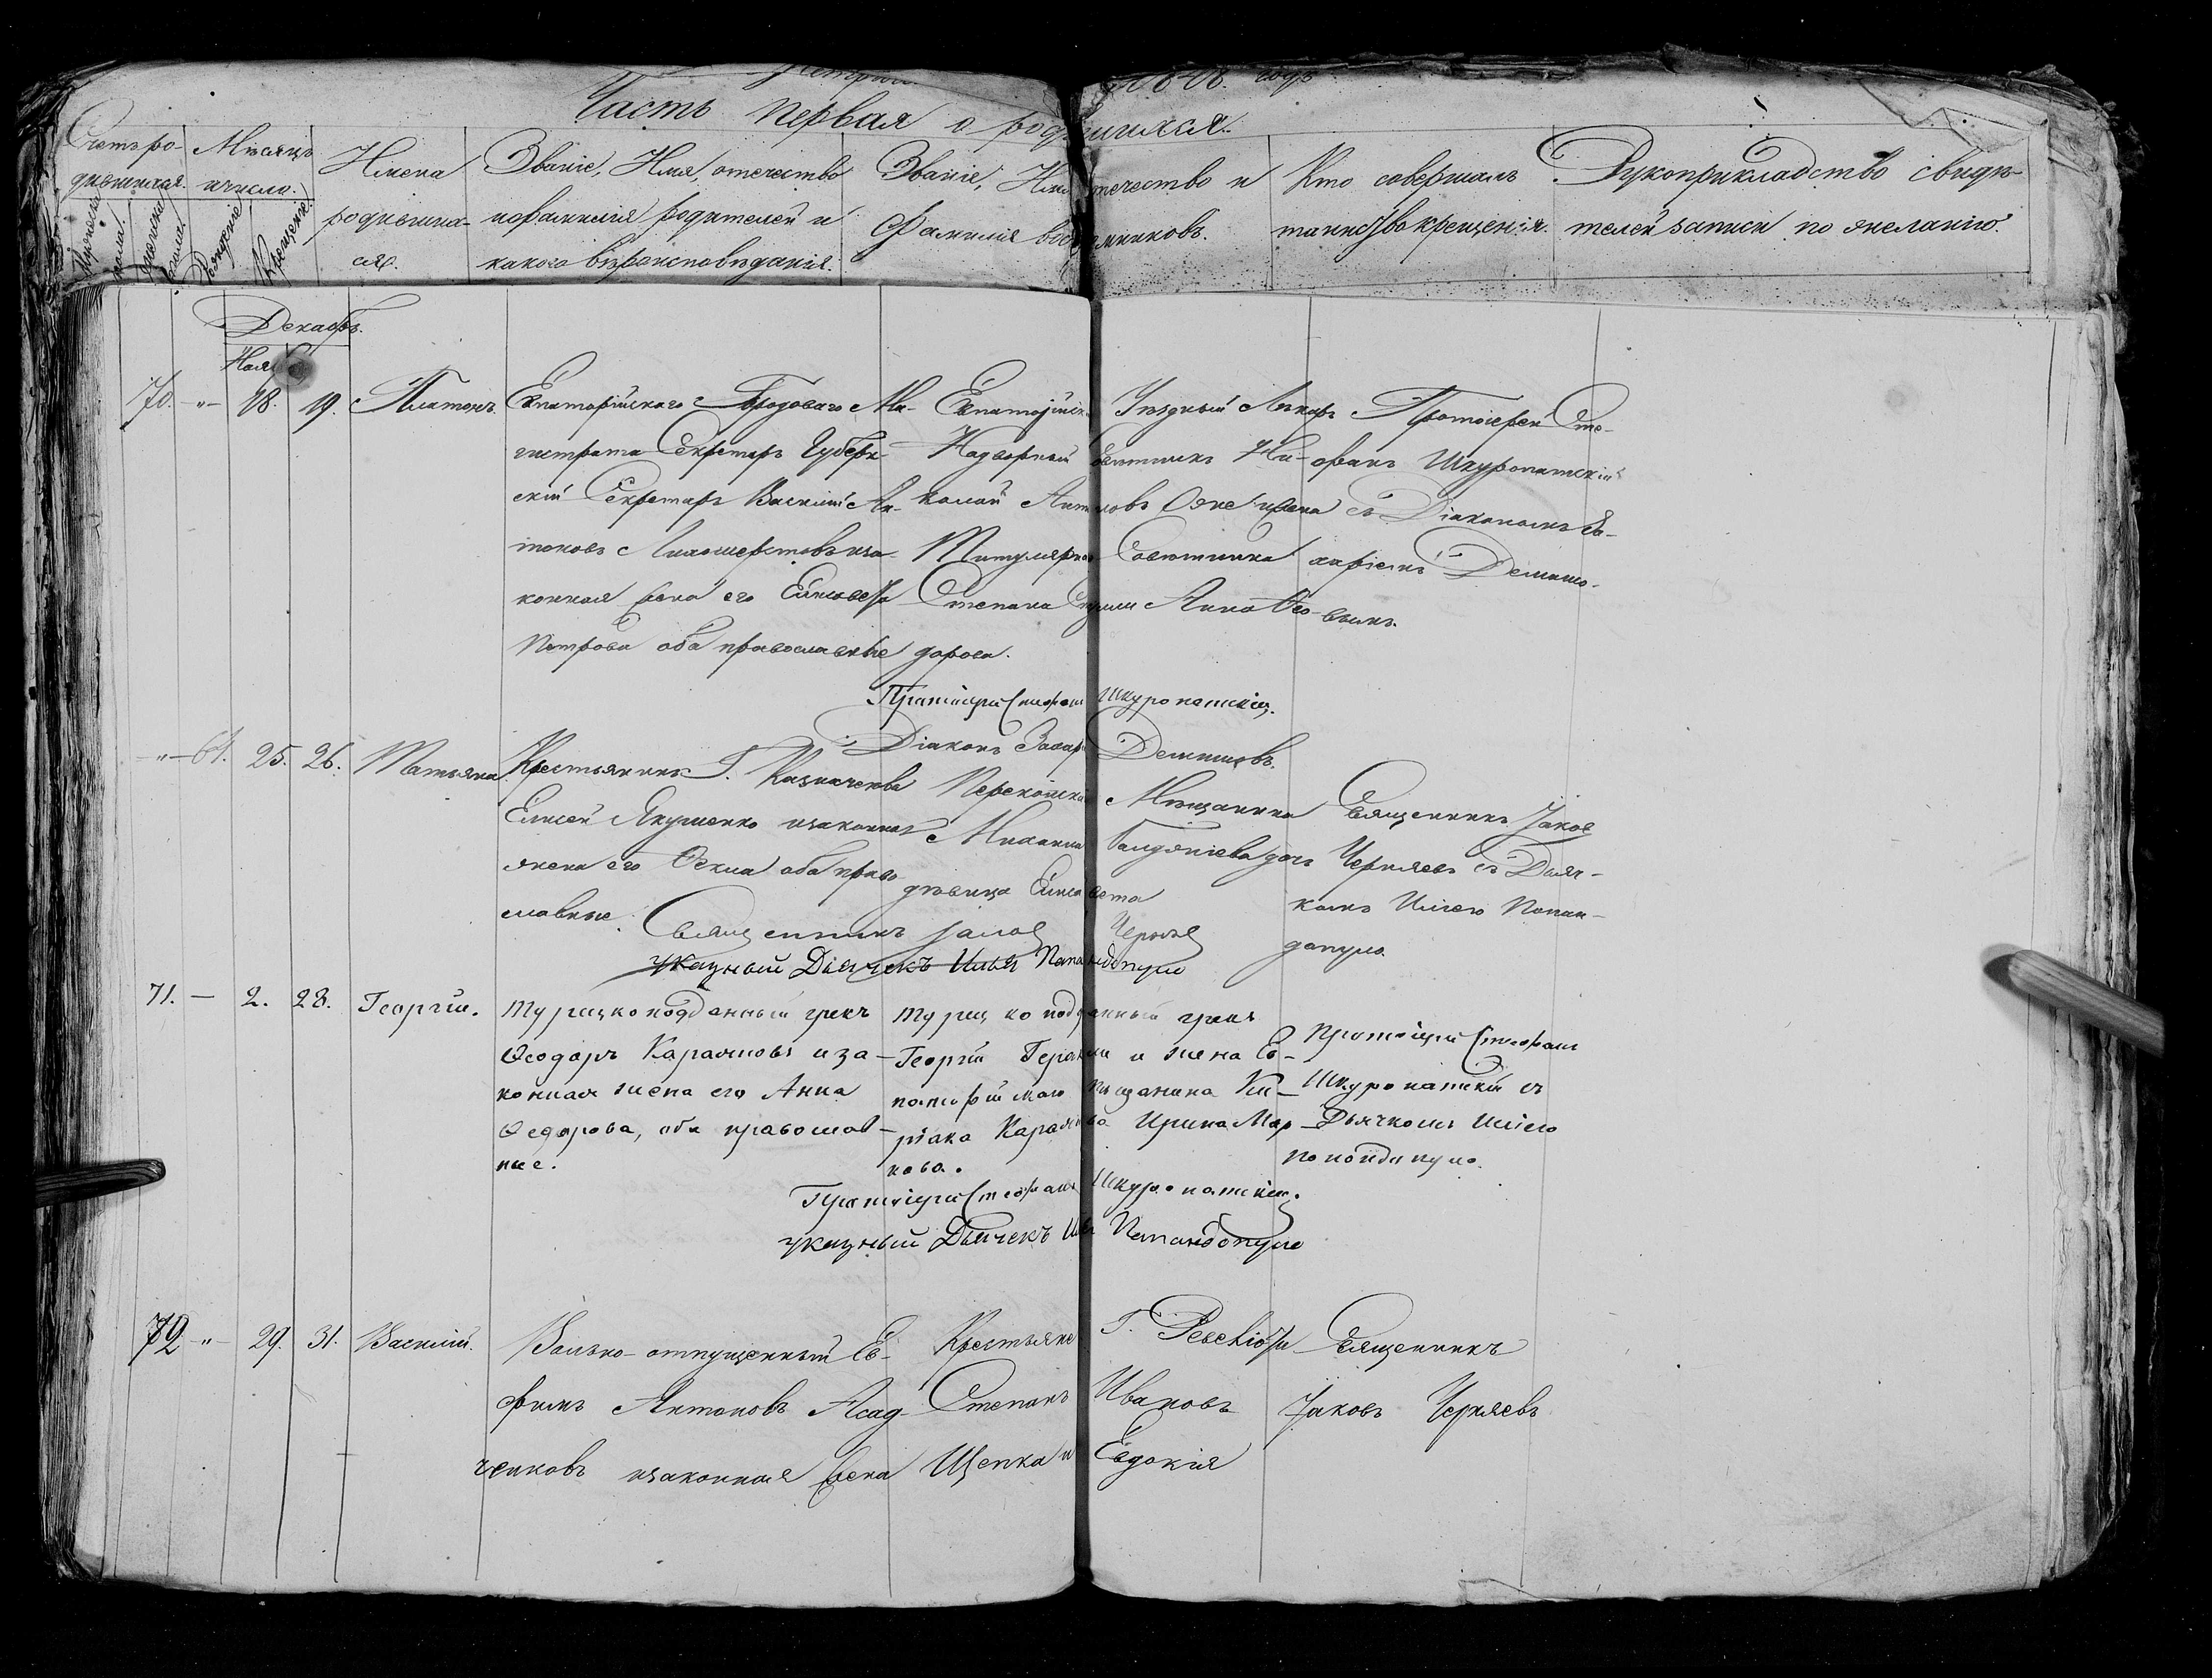 1848. годъ
Часть первая о родившихся.
Счетъ ро-
дившихся.
Мужеска
пола.
Женска
пола.
Мѣсяцъ
и число.
Рожденіе
Крещеніе.
Имена
родивших-
ся.
Званіе, Имя, отечество
и фамилія родителей и
какого вѣроисповѣданія.
Званіе, Имя отечество и
Фамилія воспріемниковъ.
Кто совершалъ
таинство крещенія.
Рукоприкладство свидѣ-
телей записи по желанію.
Декабрь.
Ноя
70. -"- 18. 19. Платонъ.
Евпаторійскаго Городоваго Ма-
гистрата Секретарь Губерн-
скій Секретарь Василій Ан-
тоновъ Лихошерстовъ иза-
конная жена его Елисавета
Петрова оба православные
Евпаторійскій Уѣздный Лѣкарь
Надворный Совѣтникъ Ни-
колай Антоновъ жена
Титулярнаго Совѣтника
Степана Анна Ѳео-
дорова.
Протоіерей Сте-
фанъ Шкуропатскій
съ Діакономъ За-
харіемъ Демимо-
вымъ.
Протоіерей Стефанъ Шкуропатскій.
Діаконъ Захарі Демимовъ.
-"- 61. 25. 26. Татьяна
Крестьянинъ Г. Казначеева
Елисей Якименко изаконная
жена его Ѳекла оба право
славные.
Перекопскаго Мѣщанина
Михаила дочь
дѣвица Елисавета
Священникъ Іаковъ
Черняевъ съ Дьяч-
комъ Иліею Попан-
допуло.
Священникъ Іаковъ Черняевъ
указный Дьячекъ Илья Папандопуло
71. - 2. 28. Георгій.
Турецкоподданный грекъ
Ѳеодоръ Караяновъ иза-
конная жена его Анна
Ѳедорова, оба православ-
ные.
турецкоподданный грекъ
Георгій и жена Ев-
паторійскаго мѣщанина Ки-
ріака Караянова Ирина Мар-
кова.
Протоіерей Стефанъ
Шкуропатскій съ
Дьячкомъ Иліею
Попондопуло.
Протоіерей Стефанъ Шкуропатскій.
указный Дьячекъ Илья Папандопуло
72 -"- 29. 31. Василій.
Вольно-отпущенный Ев-
фимъ Антоновъ Асад-
ченковъ изаконная жена
Крестьяне Г.
Степанъ Ивановъ
Щепка и Евдокія
Священникъ
Іаковъ Черняевъ